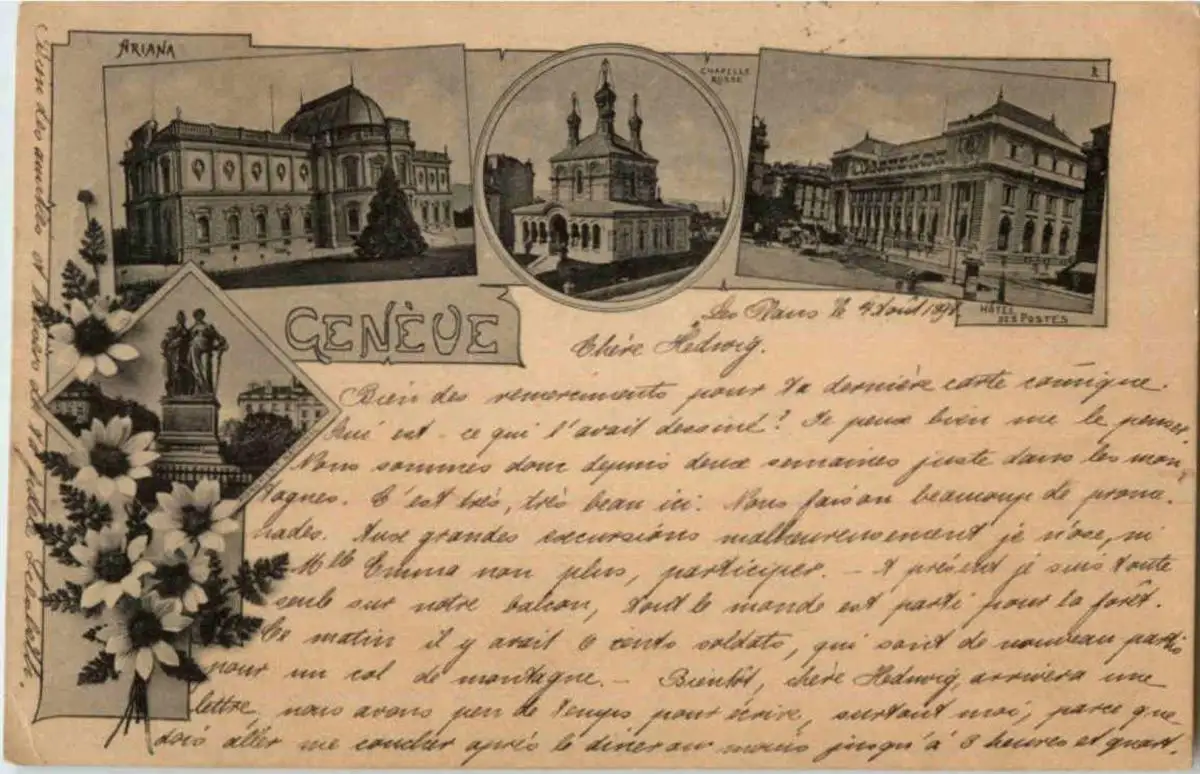 ARIANA
CHAPELLE
RUSSE
HÔTEL
DES POSTES
GENÈVE
Les Plans le 4 Août 1898.
Chère Hedwig.
Bien des remerciments pour ta dernière carte comique.
Qui est-ce qui l'avait dessiné? Je peux bien me le penser.
Nous sommes donc depuis deux semaines juste dans les mon
tagnes. C'est très, très beau ici. Nous faison beaucoup de prome
nades. Aux grandes excursions malheureusement je n'ose, ni
Mlle Emma non plus, participer. – A présent je suis toute
seule sur notre balcon, tout le monde est parti pour la forêt.
Ce matin il y avait 6 cents soldats, qui sont de nouveau partis
pour un col de montagne. – Bientôt, chère Hedwig, arrivera une
lettre, nous avons peu de temps pour écrire, surtout moi, parce que
dois aller me coucher après le diner au moins jusqu'à 3 heures et quart.
Bien des amitiés et baisers de ta fidèle